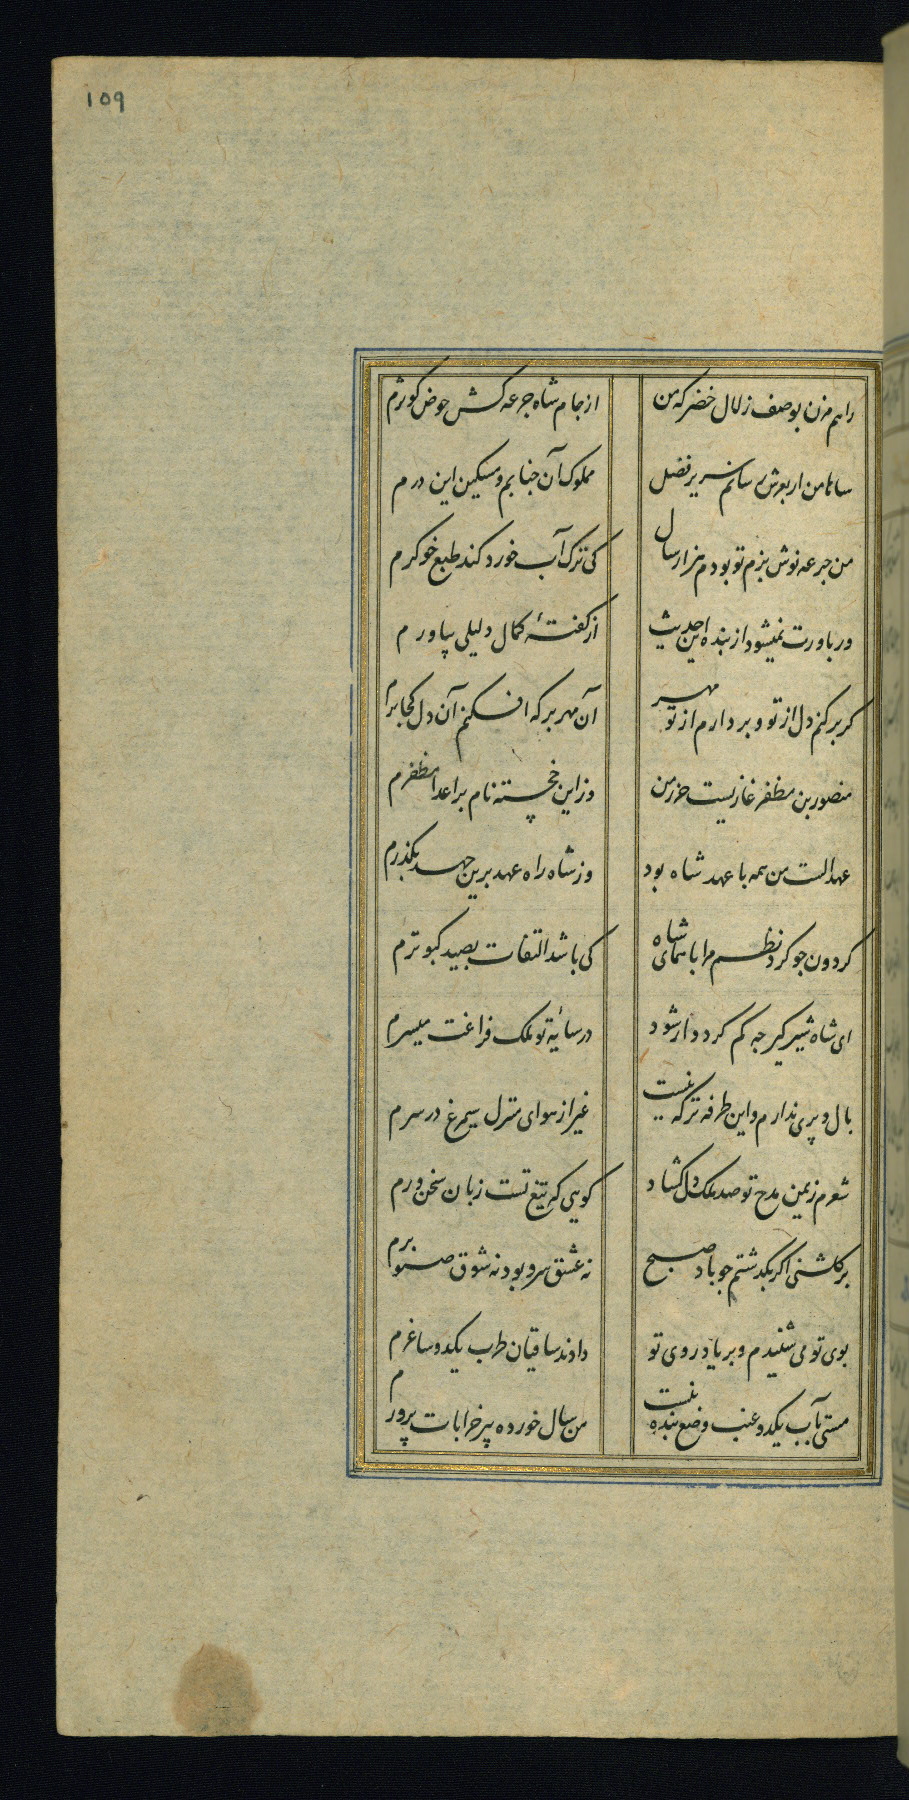 109
راهم مزن بوصف زلال خضر که من از جام شاه جرعه کش حوض کوثرم
شاها من ار بعرش رسانم سریر فضل مملوک آن جنابم و مسکین این درم
من جرعه نوش بزم تو بودم هزار سال کی ترک آب خورد کند طبع خوکرم
ور باورت نمیشود از بنده این حدیث از کفتهٔ کمال دلیلی بیاورم
کر برکنم دل از تو و بردارم از تو مهر آن مهر بر که افکنم آن دل کجا برم
منصور بن مظفر غازیست حرز من وز این خجسته نام بر اعدا مظفرم
عهد الست من همه با عهد شاه بود وز شاه راه عهد برین جهد بکذرم
کردون جو کرد نظم مرا با همای شاه کی باشد التفات بصید کبوترم
ای شاه شیر کیر جه کم کردد ار شود در سایهٔ تو ملک فراغت میسرم
بال و پری ندارم و این طرفه ترکه نیست غیر از هوای منزل سیمرغ در سرم
شعرم زیمن مدح تو صد ملک دل کشاد کویی که تیغ تست زبان سخن ورم
بر کلشنی اکر بکذشتم جو باد صبح نه عشق سرو بود نه شوق صنوبرم
بوی تو می شنیدم و بر یاد روی تو دادند ساقیان طرب یکدو ساغرم
مستی بآب یکدو عنب وضع بنده نیست من سال خورده پیر خرابات پرورم